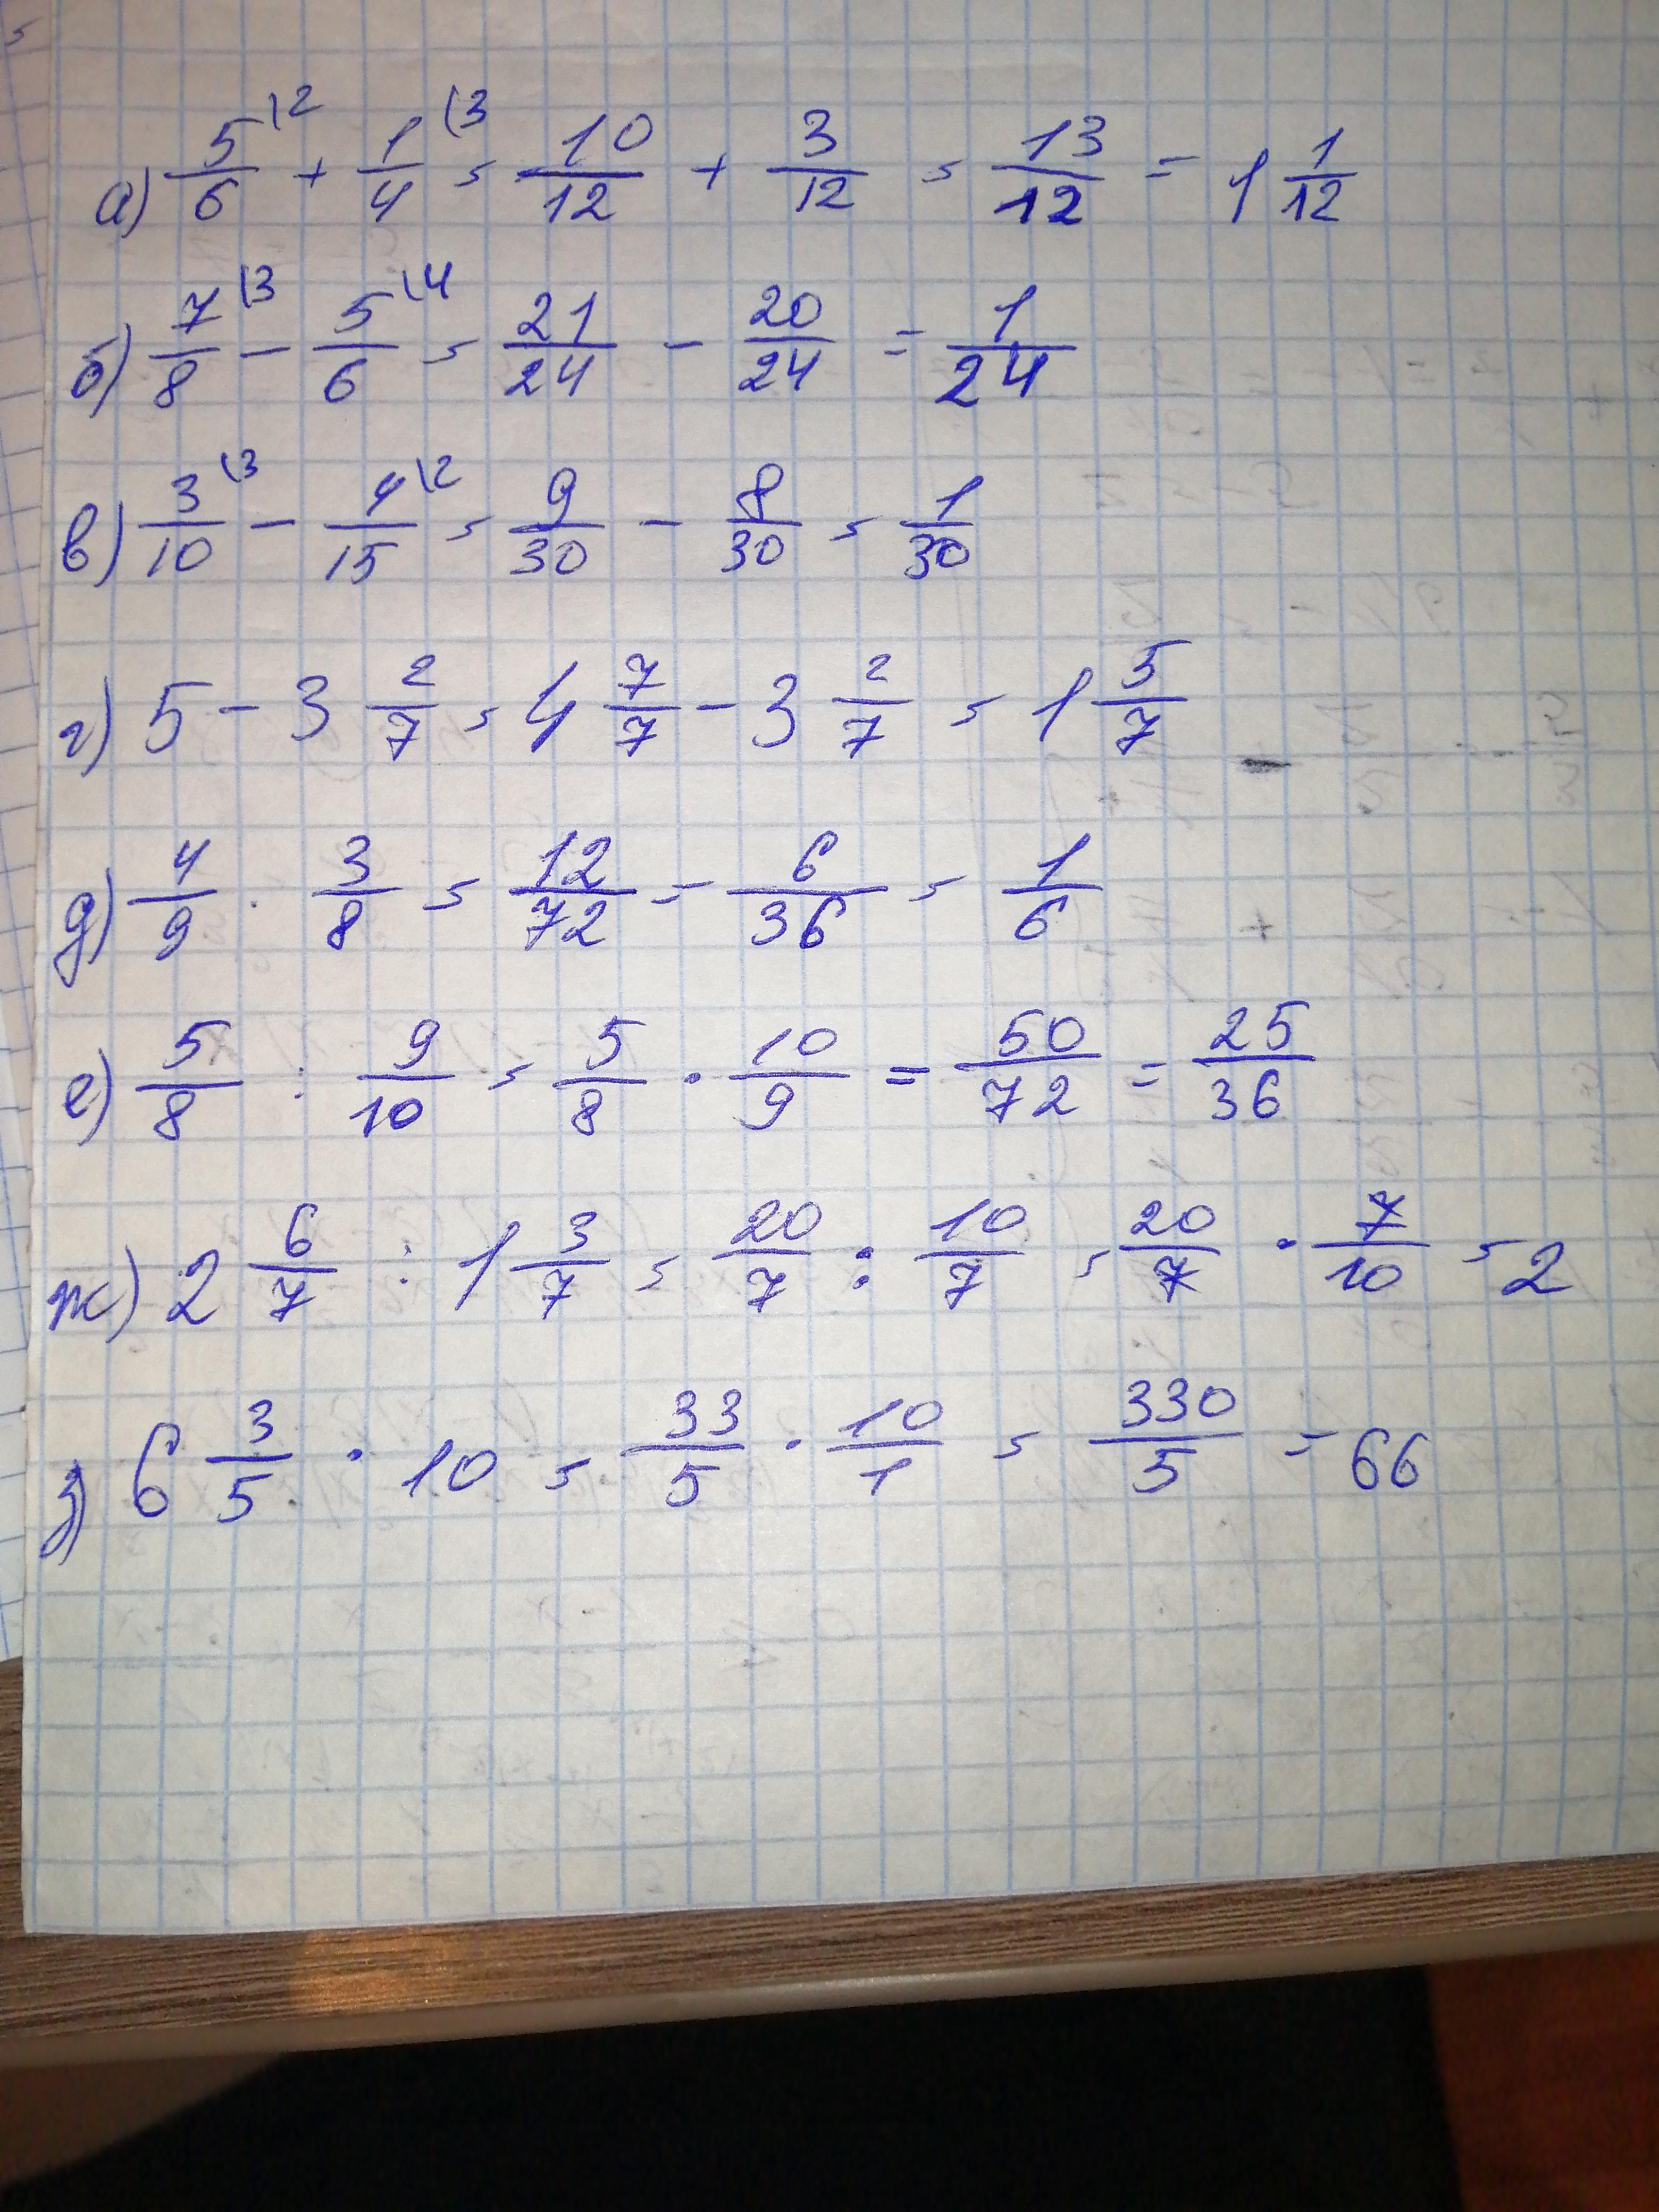 а) 5/6 \2 + 1/4 \3 = 10/12 + 3/12 = 13/12 = 1 1/12
б) 7/8 \3 - 5/6 \4 = 21/24 - 20/24 = 1/24
в) 3/10 \3 - 4/15 \2 = 9/30 - 8/30 = 1/30
г) 5 - 3 2/7 = 4 7/7 - 3 2/7 = 1 5/7
д) 4/9 · 3/8 = 12/72 = 6/36 = 1/6
е) 5/8 : 9/10 = 5/8 · 10/9 = 50/72 = 25/36
ж) 2 6/7 : 1 3/7 = 20/7 : 10/7 = 20/7 · 7/10 = 2
з) 6 3/5 · 10 = 33/5 · 10/1 = 330/5 = 66